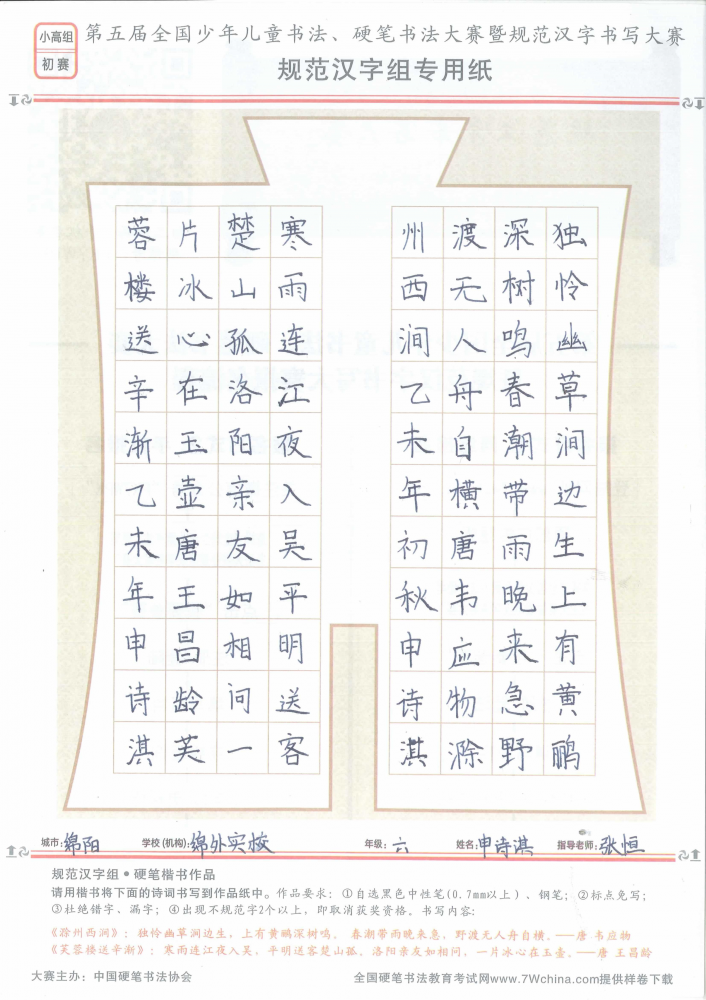 小高组
初赛
第五届全国少年儿童书法、硬笔书法大赛暨规范汉字书写大赛
规范汉字组专用纸
独怜幽草涧边生上有黄鹂
深树鸣春潮带雨晚来急野
渡无人舟自横唐韦应物滁
州西涧乙未年初秋申诗淇
寒雨连江夜入吴平明送客
楚山孤洛阳亲友如相问一
片冰心在玉壶唐王昌龄芙
蓉楼送辛渐乙未年申诗淇
城市:绵阳 学校(机构):绵外实校 年级:六 姓名:申诗淇 指导老师:张恒
规范汉字组•硬笔楷书作品
请用楷书将下面的诗词书写到作品纸中。作品要求:①自选黑色中性笔(0.7mm以上)、钢笔;②标点免写;
③杜绝错字、漏字;④出现不规范字2个以上,即取消获奖资格。书写内容:
《滁州西涧》:独怜幽草涧边生,上有黄鹂深树鸣。 春潮带雨晚来急,野渡无人舟自横。——唐 韦应物
《芙蓉楼送辛渐》:寒雨连江夜入吴,平明送客楚山孤。洛阳亲友如相问,一片冰心在玉壶。——唐 王昌龄
大赛主办:中国硬笔书法协会 全国硬笔书法教育考试网www.7Wchina.com提供样卷下载